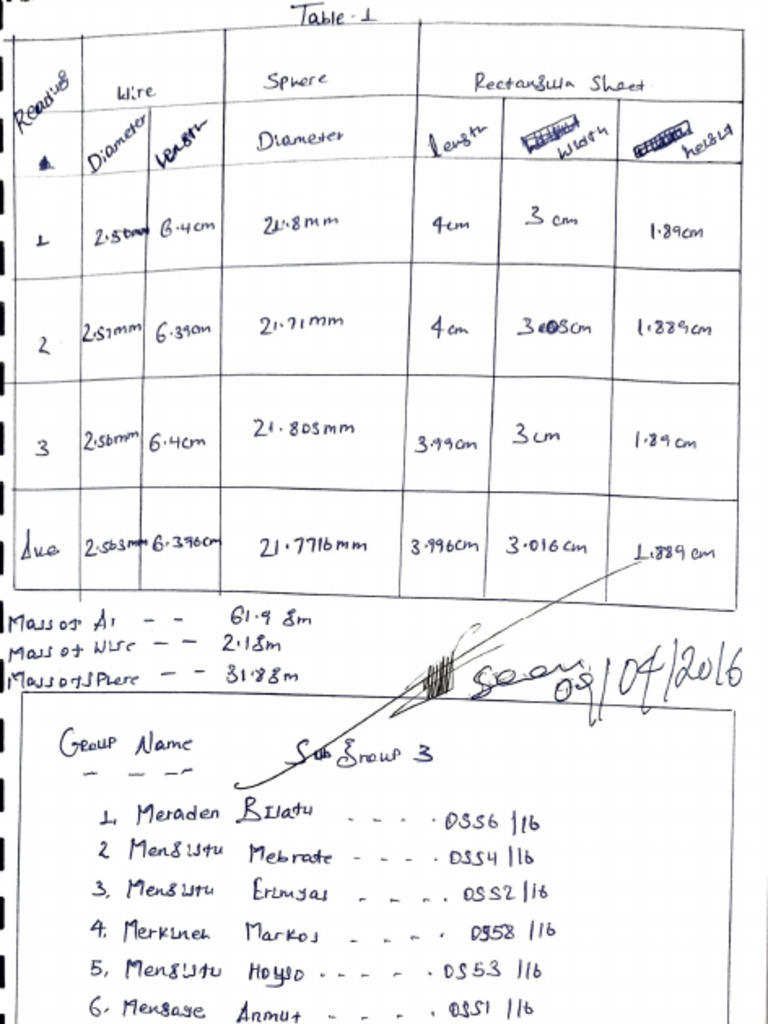 Table - 1
Reading Wire Sphere Rectangular Sheet
Diameter Length Diameter length width height
1 2.56mm 6.4cm 21.8mm 4cm 3 cm 1.89cm
2 2.57mm 6.39cm 21.71mm 4cm 3.05cm 1.889cm
3 2.56mm 6.4cm 21.805mm 3.99cm 3cm 1.89cm
Ave 2.563mm 6.396cm 21.7716mm 3.996cm 3.016cm 1.889cm
Mass of Al - - 61.9 gm
Mass of Wire - - 2.1gm
Mass of sphere - - 31.88m
seen 09/04/2016
Group Name Sub Group 3
1, Meraden Bilatu - - - - 0556 /16
2 Mengistu Mebrate - - - - 0554 /16
3, Mengistu Ermyas - - - - 0552 /16
4. Merkineh Markos - - - - 0558 /16
5, Mengistu Hoyso - - - - - 0553 /16
6. Mengage Anmut - - - - 0551 /16